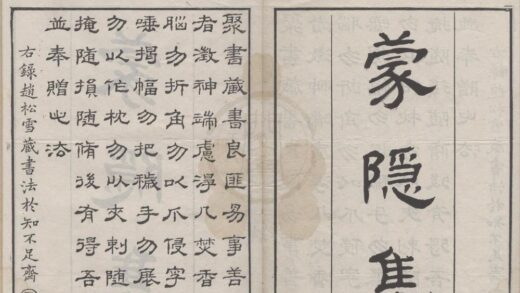 蒙隐集
聚書藏書良匪易事善
者澂神端慮淨几焚香
腦勿折角勿以爪侵字
唾揭幅勿把穢手勿展
勿以作枕勿以夾刺隨
掩隨損隨脩後有得吾
並奉贈此法
右錄趙松雪藏書法於知不足齋